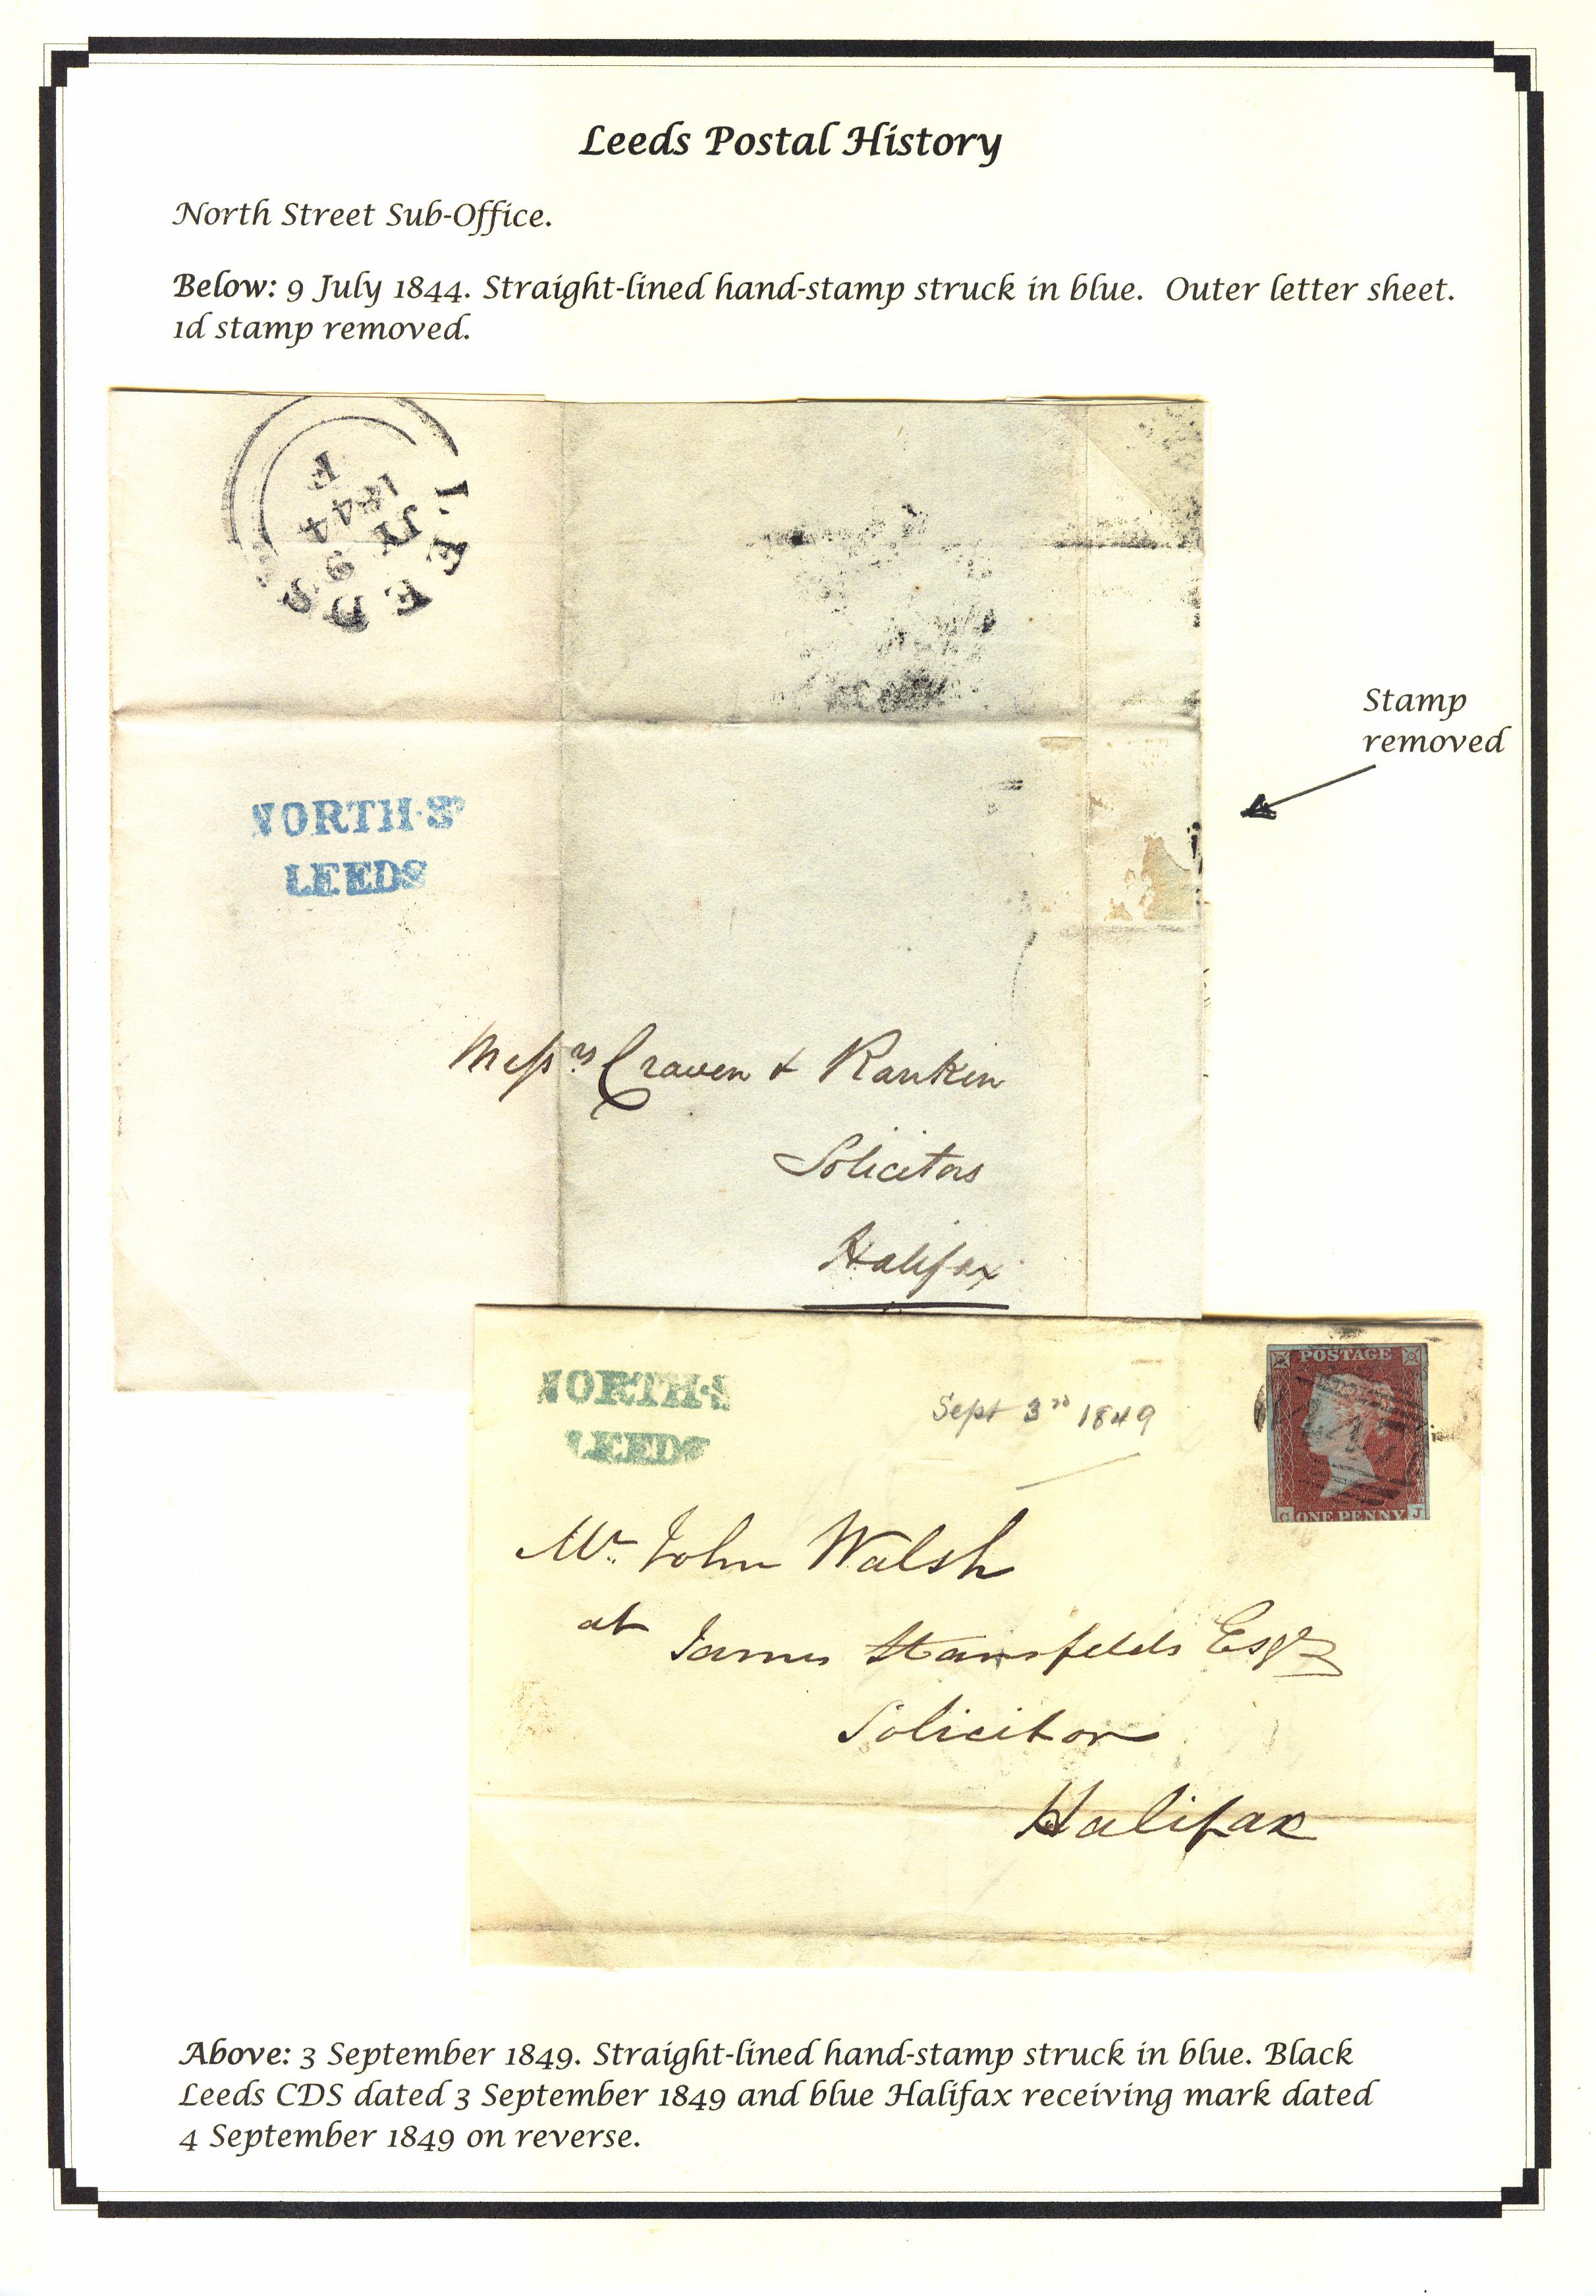 Leeds Postal History
North Street Sub-Office.
Below: 9 July 1844. Straight-lined hand-stamp struck in blue. Outer letter sheet.
1d stamp removed.
LEEDS
JY 9
1844
F
Stamp
removed
NORTH·Sᵗ
LEEDS
Messrs Craven & Rankin
Solicitors
Halifax
NORTH·S
LEEDS
Sept 3rd 1849
POSTAGE
C ONE PENNY J
Mr John Walsh
at
James Stansfelds Esqr
Solicitor
Halifax
Above: 3 September 1849. Straight-lined hand-stamp struck in blue. Black
Leeds CDS dated 3 September 1849 and blue Halifax receiving mark dated
4 September 1849 on reverse.